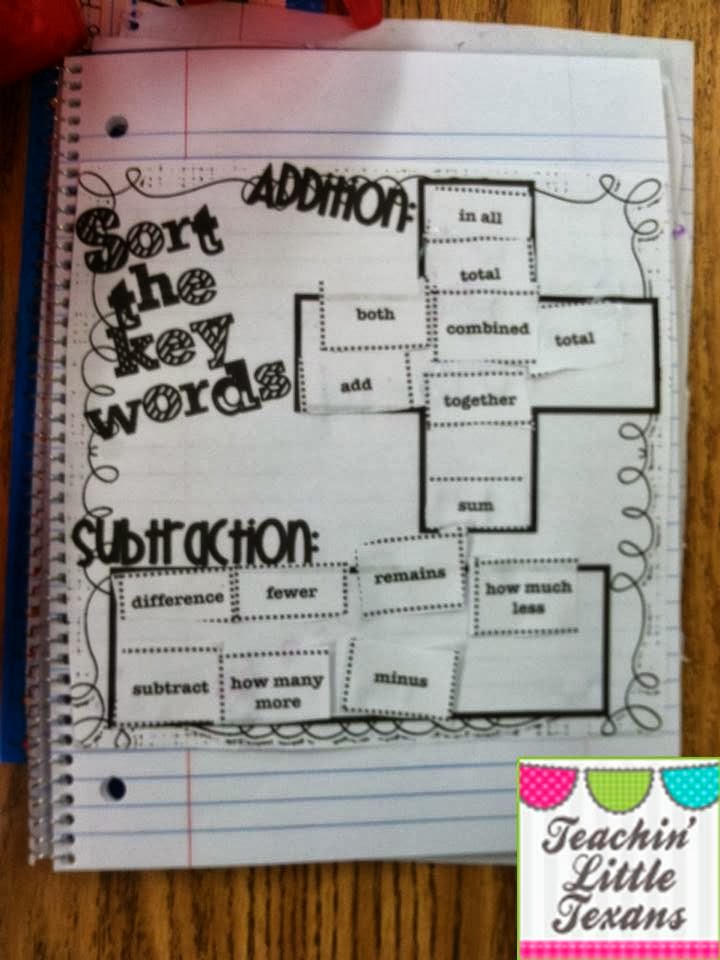 Sort
the
key
words
Addition:
in all
total
both
combined
total
add
together
sum
Subtraction:
difference
fewer
remains
how much
less
subtract
how many
more
minus
Teachin'
Little
Texans